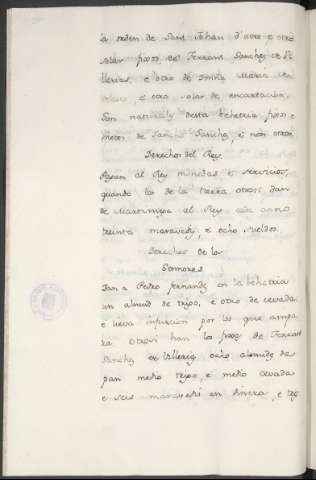 la orden de Sant Johan d'acre e otro
solar fijos de Ferrant Sanchez de
e otro de Santa Maria
e otro solar de encartacion.
Son naturales desta behetria fijos e
nietos de Sancho Sanchez, e non otros
Derechos del Rey.
Pagan al Rey monedas e servicios,
quando los de la tierra otrosi dan
de Martiniega al Rey cada anno
treinta maravedis, e ocho sueldos.
Derechos de los
Sennores
Dan a Pedro fernandez en la behetria
un almud de trigo, e otro de cevada
e lieva infurcion por los que ampa
ra otrosi han los fijos de Ferrant
Sanchez de ocho almudes de
pan medio trigo, e medio cevada
e seis maravedis en